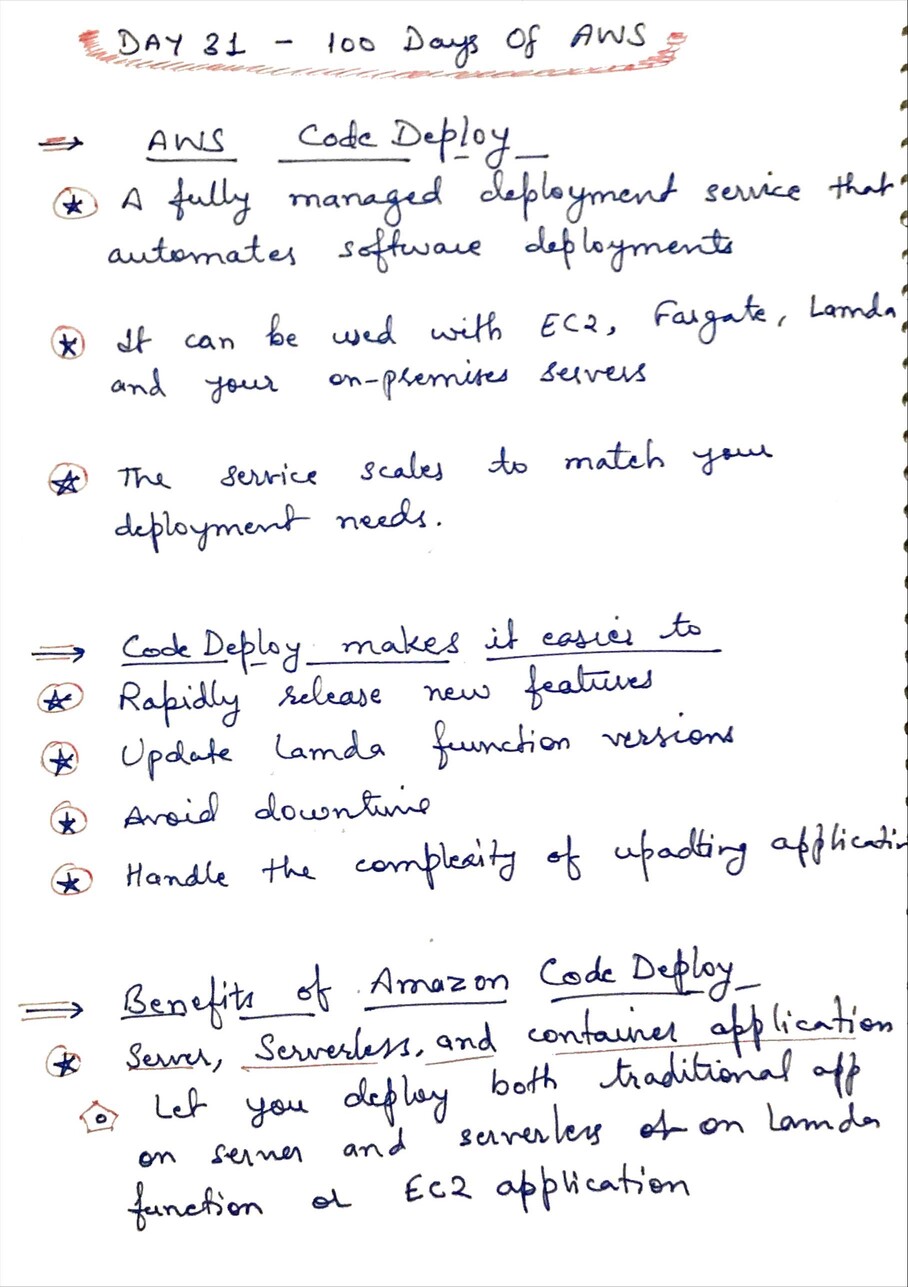 DAY 31 - 100 Days Of AWS
⇒ AWS Code Deploy
A fully managed deployment service that
automates software deployments
It can be used with EC2, Fargate, Lamda
and your on-premises servers
The service scales to match your
deployment needs.
⇒ Code Deploy makes it easier to
Rapidly release new features
Update Lamda function versions
Avoid downtime
Handle the complexity of upadting applicatin
⇒ Benefits of Amazon Code Deploy
Server, Serverless, and container application
Let you deploy both traditional app
on server and serverless on Lamda
function or EC2 application